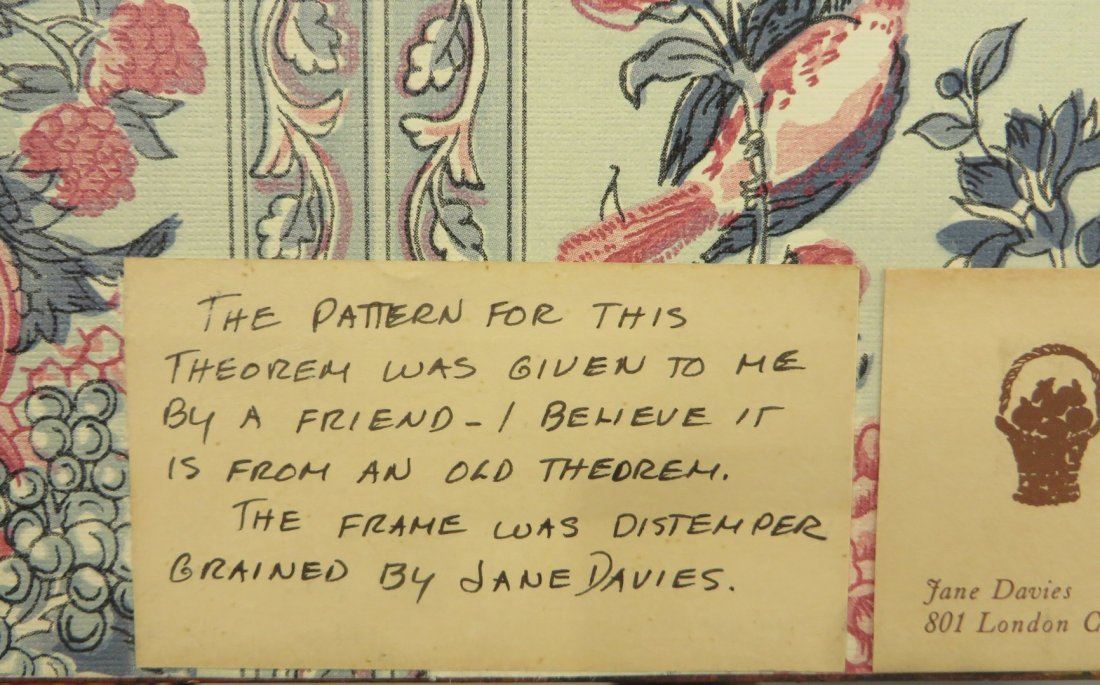 THE PATTERN FOR THIS
THEOREM WAS GIVEN TO ME
BY A FRIEND - I BELIEVE IT
IS FROM AN OLD THEOREM.
THE FRAME WAS DISTEMPER
GRAINED BY JANE DAVIES.
Jane Davies
801 London